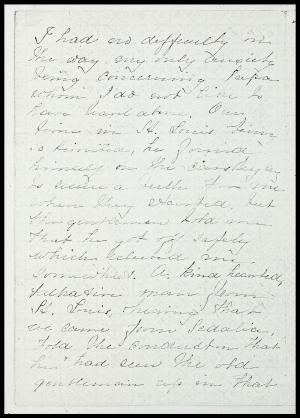 I had no difficulty in
the way, my only anxiety
being concerning Papa
whom I do not like to
have alone. Our
time in St. Louis being
so limited, he
himself on the cars trying
to secure a berth for me
when they started, but
the gentleman told me
that he got off safely
which relieved me
somewhat. A kind hearted,
talkative man from
St. Louis, hearing that
we came from Sedalia,
told the conductor that
he had seen the old
gentleman up in that